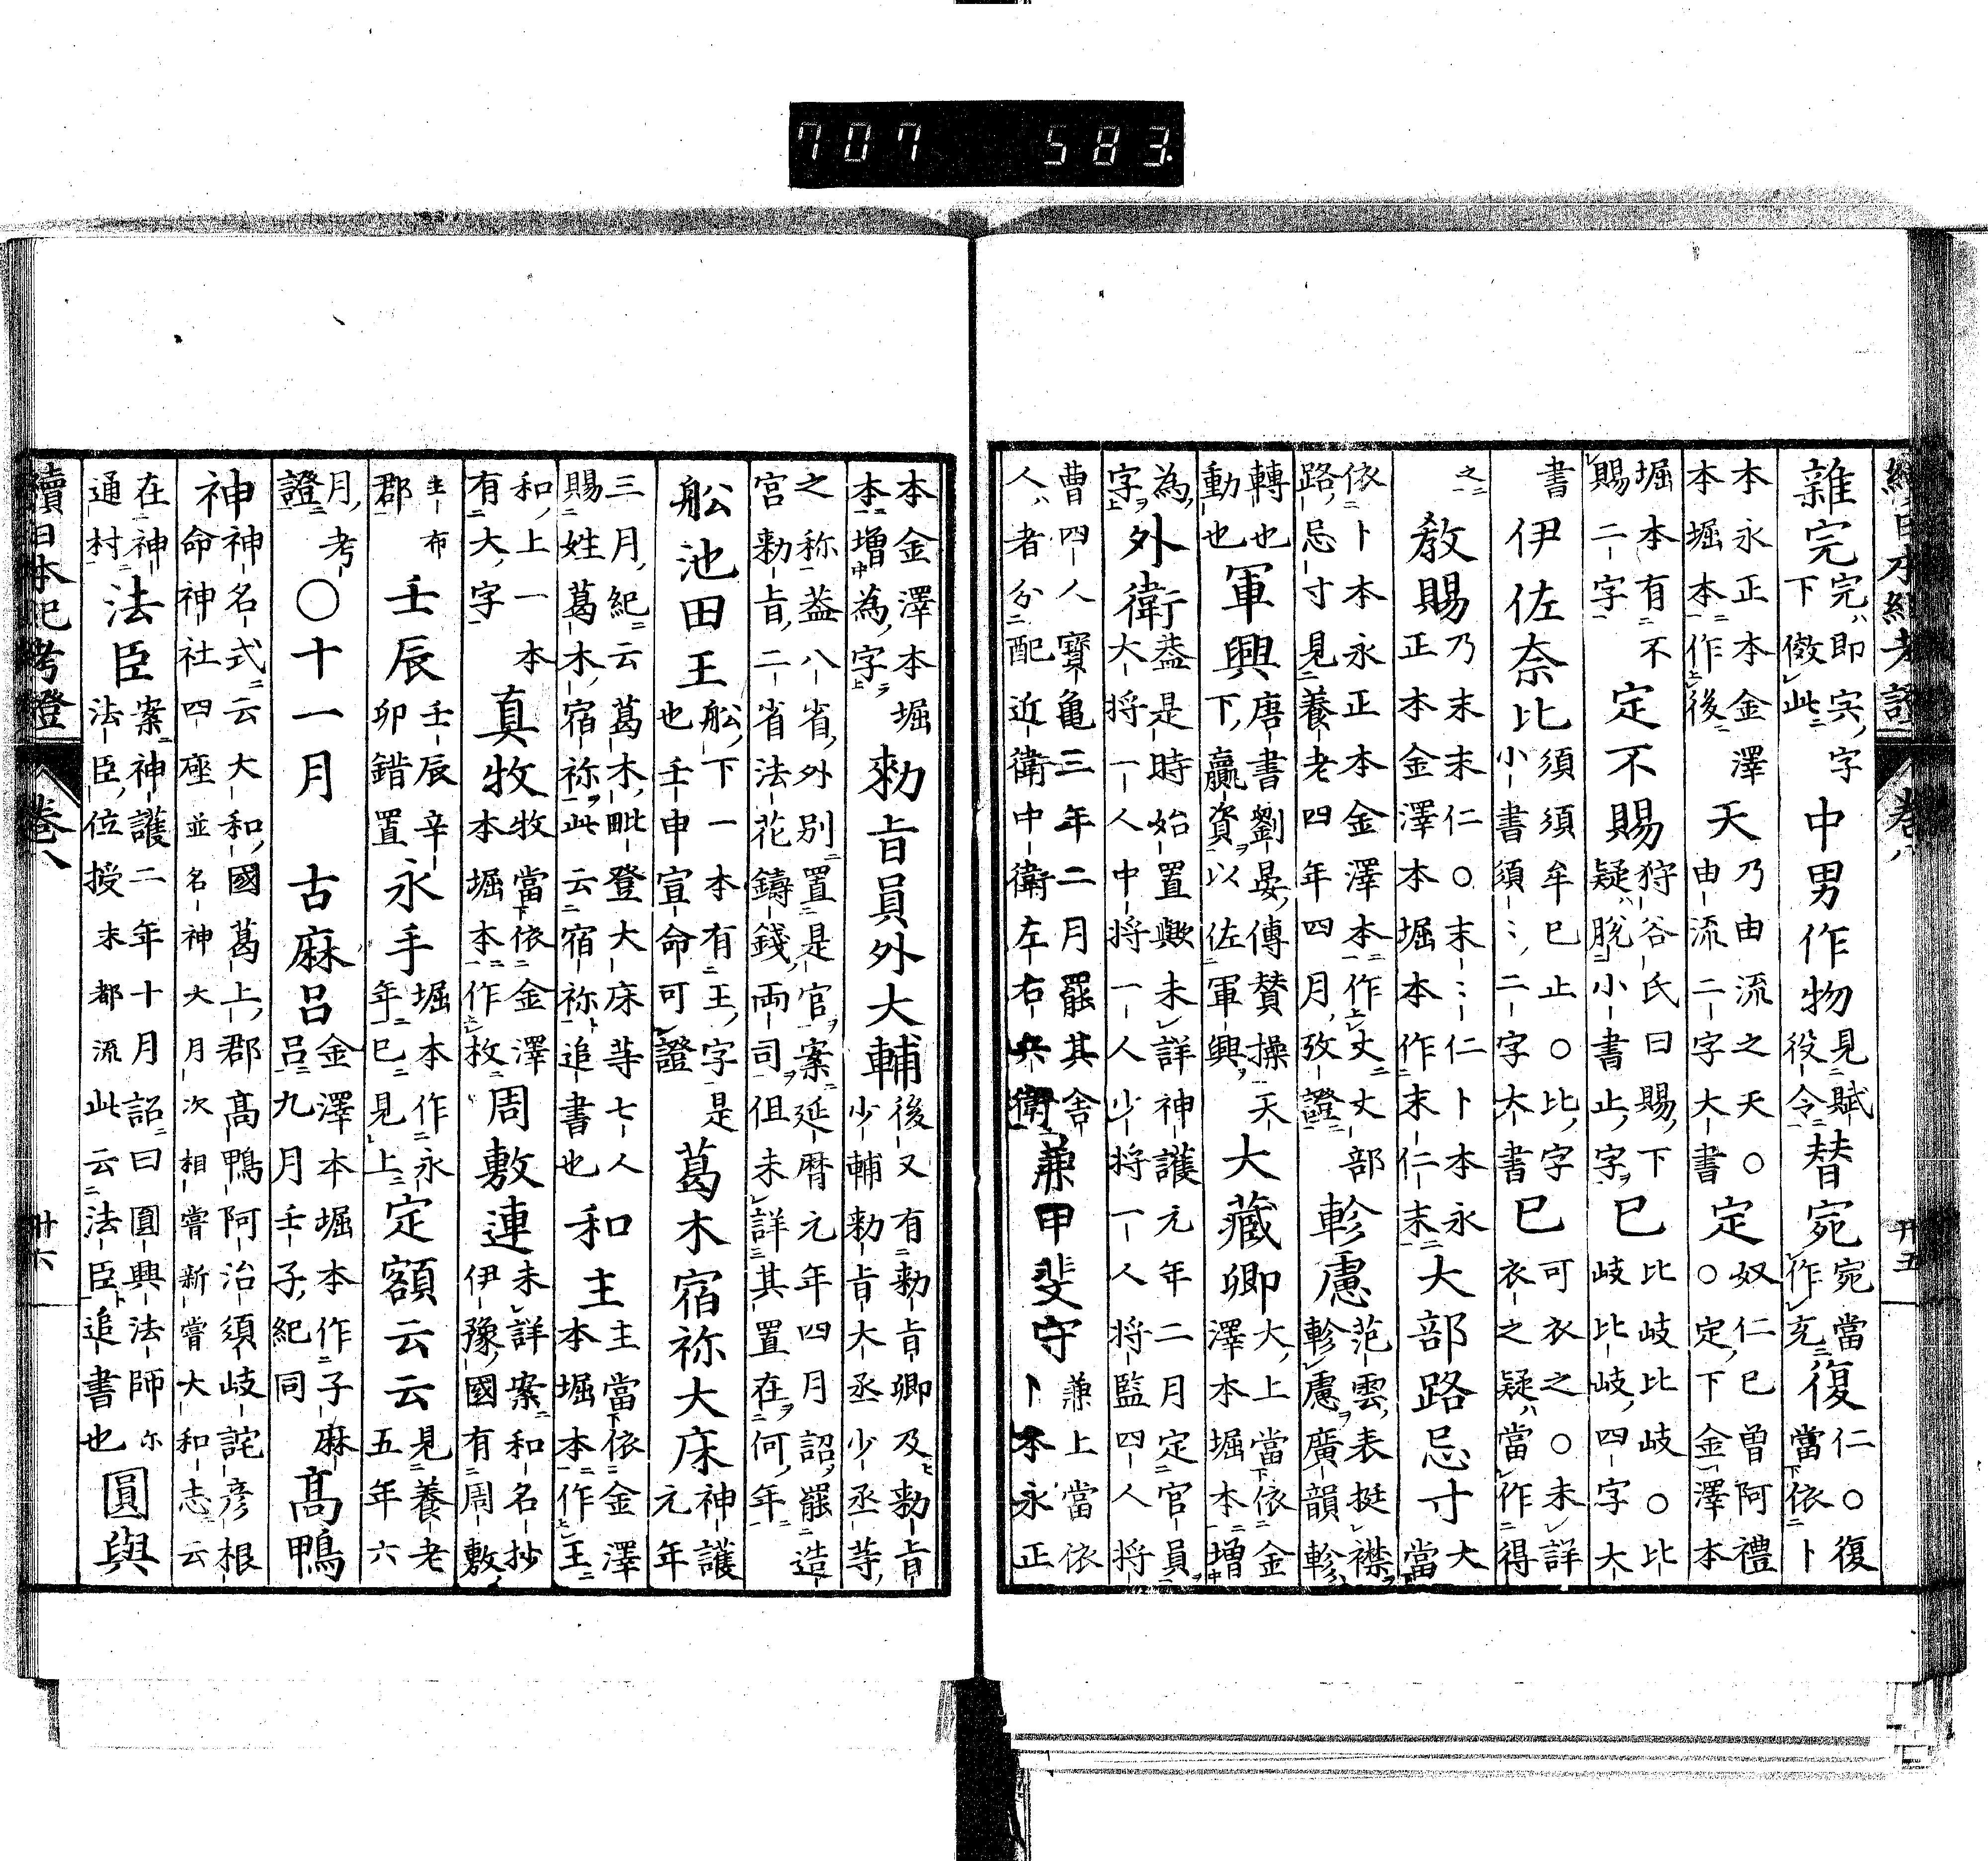 707 583.
續日本紀考證 卷八 廿五
雜完 完即宍字 下傚此 中男作物 見賦 役令 替宛 宛當 作充 復 仁○復 當依卜
本永正本金澤 本堀本作後 天 乃由流之天○ 由流二字大書 定 奴仁已曾阿禮 ○定下金澤本
堀本有不 賜二字 定不賜 狩谷氏曰賜下 疑脫小書止字 已 比岐比岐○比 岐比岐四字大
書 伊佐奈比 須須牟已止○比字 小書須〻二字大書 已 可衣之○未詳 衣之疑當作得
之 敎賜 乃末末仁○末〻仁卜本永 正本金澤本堀本作末仁末 大部路忌寸 大 當
依卜本永正本金澤本作丈丈部 路忌寸見養老四年四月攷證 軫慮 范雲表挺襟 軫慮廣韻軫
轉也 動也 軍興 唐書劉晏傳贊操天 下贏資以佐軍興 大藏卿 大上當依金 澤本堀本增
為 字 外衛 蓋是時始置歟未詳神護元年二月定官員 大將一人中將一人少將一人將監四人將
曹四人寶龜三年二月罷其舍 人者分配近衛中衛左右兵衛 兼甲斐守 兼上當依 卜本永正
本金澤本堀 本增為字 勅旨員外大輔 後又有勅旨卿及勅旨 少輔勅旨大丞少丞等
之称蓋八省外别置是官案延暦元年四月詔罷造 宮勅旨二省法花鑄錢両司但未詳其置在何年
舩池田王 舩下一本有王字是 也壬申宣命可證 葛木宿祢大床 神護 元年
三月紀云葛木毗登大床等七人 賜姓葛木宿祢此云宿祢追書也 和主 主當依金澤 本堀本作王
和上一本 有大字 真牧 牧當依金澤 本堀本作枚 周敷連 未詳案和名抄 伊豫國有周敷
主布 郡 壬辰 壬辰辛 卯錯置 永手 堀本作永 年已見上 定額云云 見養老 五年六
月考 證 ○十一月 古麻呂 金澤本堀本作子麻 呂九月壬子紀同 髙鴨
神 神名式云大和國葛上郡髙鴨阿治須岐詫彦根 命神社四座並名神大月次相嘗新嘗大和志云
在神 通村 法臣 案神護二年十月詔曰圓興法師尓 法臣位授末都流此云法臣追書也 圓與
續日本紀考證 卷八 廿六